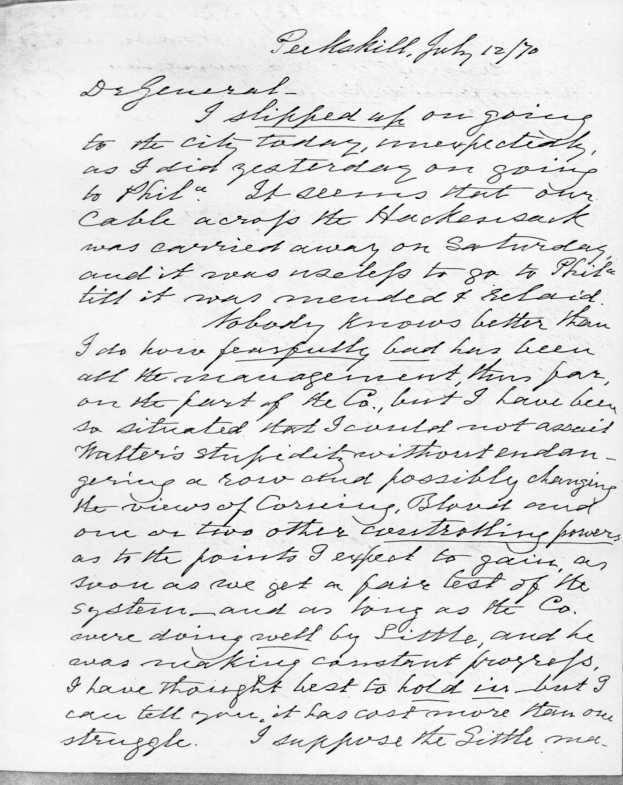 Peekskill, July 12/70
Dr General –
I slipped up on going
to the city today, unexpectedly,
as I did yesterday on going
to Phila. It seems that our
Cable across the Hackensack
was carried away on Saturday,
and it was useless to go to Phila
till it was mended & relaid.
Nobody knows better than
I do how fearfully bad has been
all the management, thus far,
on the part of the Co., but I have been
so situated that I could not assail
Walter's stupidity without endan-
gering a row and possibly changing
the views of Corning, Blood and
one or two other controlling powers
as to the points I expect to gain, as
soon as we get a fair test of the
system – and as long as the Co.
were doing well by Little, and he
was making constant progress,
I have thought best to hold in – but I
can tell you, it has cost more than one
struggle. I suppose the Little ma-